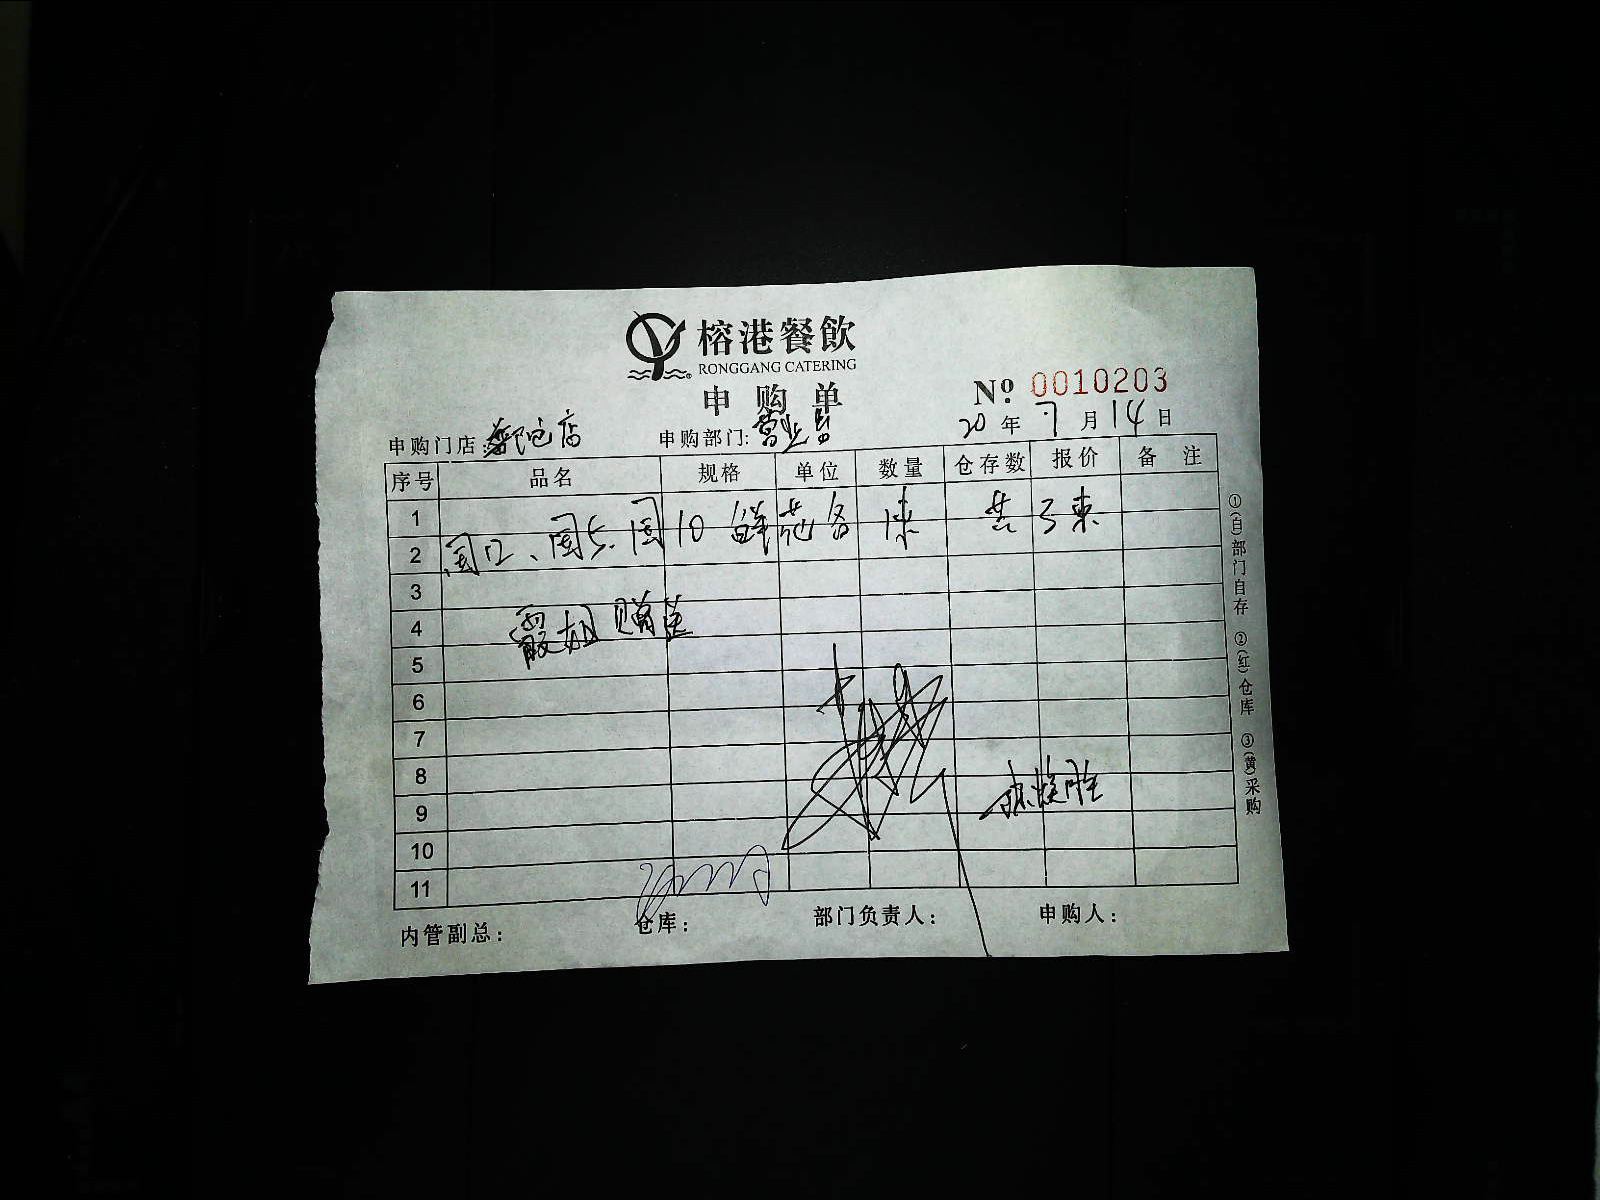 榕港餐飲
RONGGANG CATERING
申购单
№ 0010203
申购门店: 店 申购部门: 营业部 20年7月14日
序号 品名 规格 单位 数量 仓存数 报价 备注
1
2 周四、周五、周日 鲜花各1束 共3束
3
4 霞姐赠送
5
6
7
8
9
10
11
内管副总: 仓库: 部门负责人: 申购人:
①(白)部门自存 ②(红)仓库 ③(黄)采购